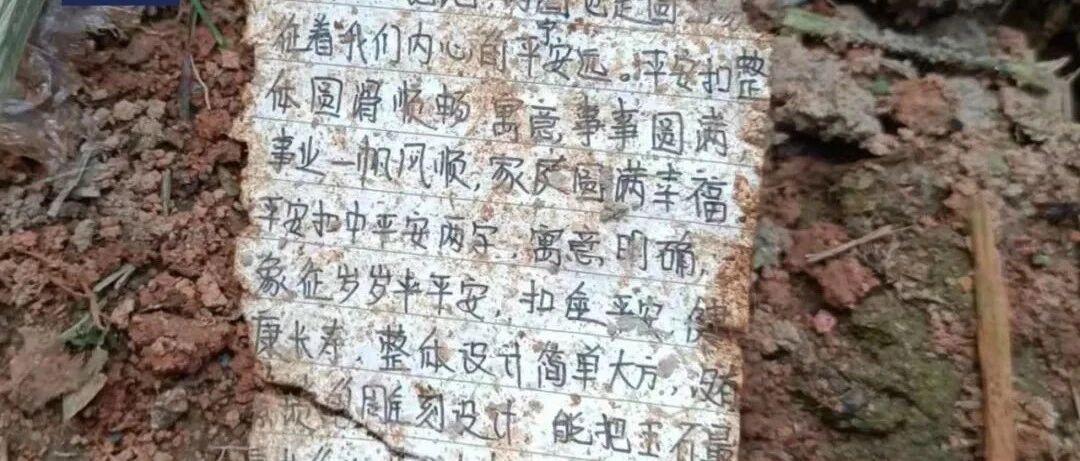 也是圆
征着我们内心的平安远。平安扣整
字
体圆滑顺畅 寓意事事圆满,
事业一帆风顺,家庭圆满幸福
平安扣中平安两字,寓意明确,
象征岁岁平平安,扣座平安,健
康长寿,整体设计简单大方,没有
雕刻设计 能把玉石最